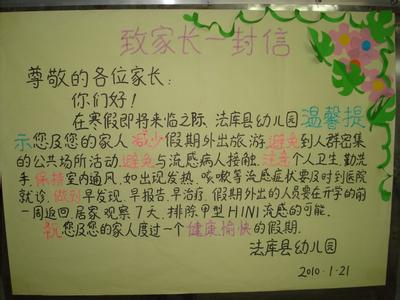 致家长一封信
尊敬的各位家长：
你们好！
在寒假即将来临之际，法库县幼儿园温馨提
示您及您的家人减少假期外出旅游，避免到人群密集
的公共场所活动，避免与流感病人接触，注意个人卫生，勤洗
手，保持室内通风，如出现发热、咳嗽等流感症状要及时到医院
就诊，做到早发现、早报告、早治疗，假期外出的人员要在开学的前
一周返回，居家观察7天，排除甲型H1N1流感的可能。
祝您及您的家人度过一个健康、愉快的假期。
法库县幼儿园
2010.1.21